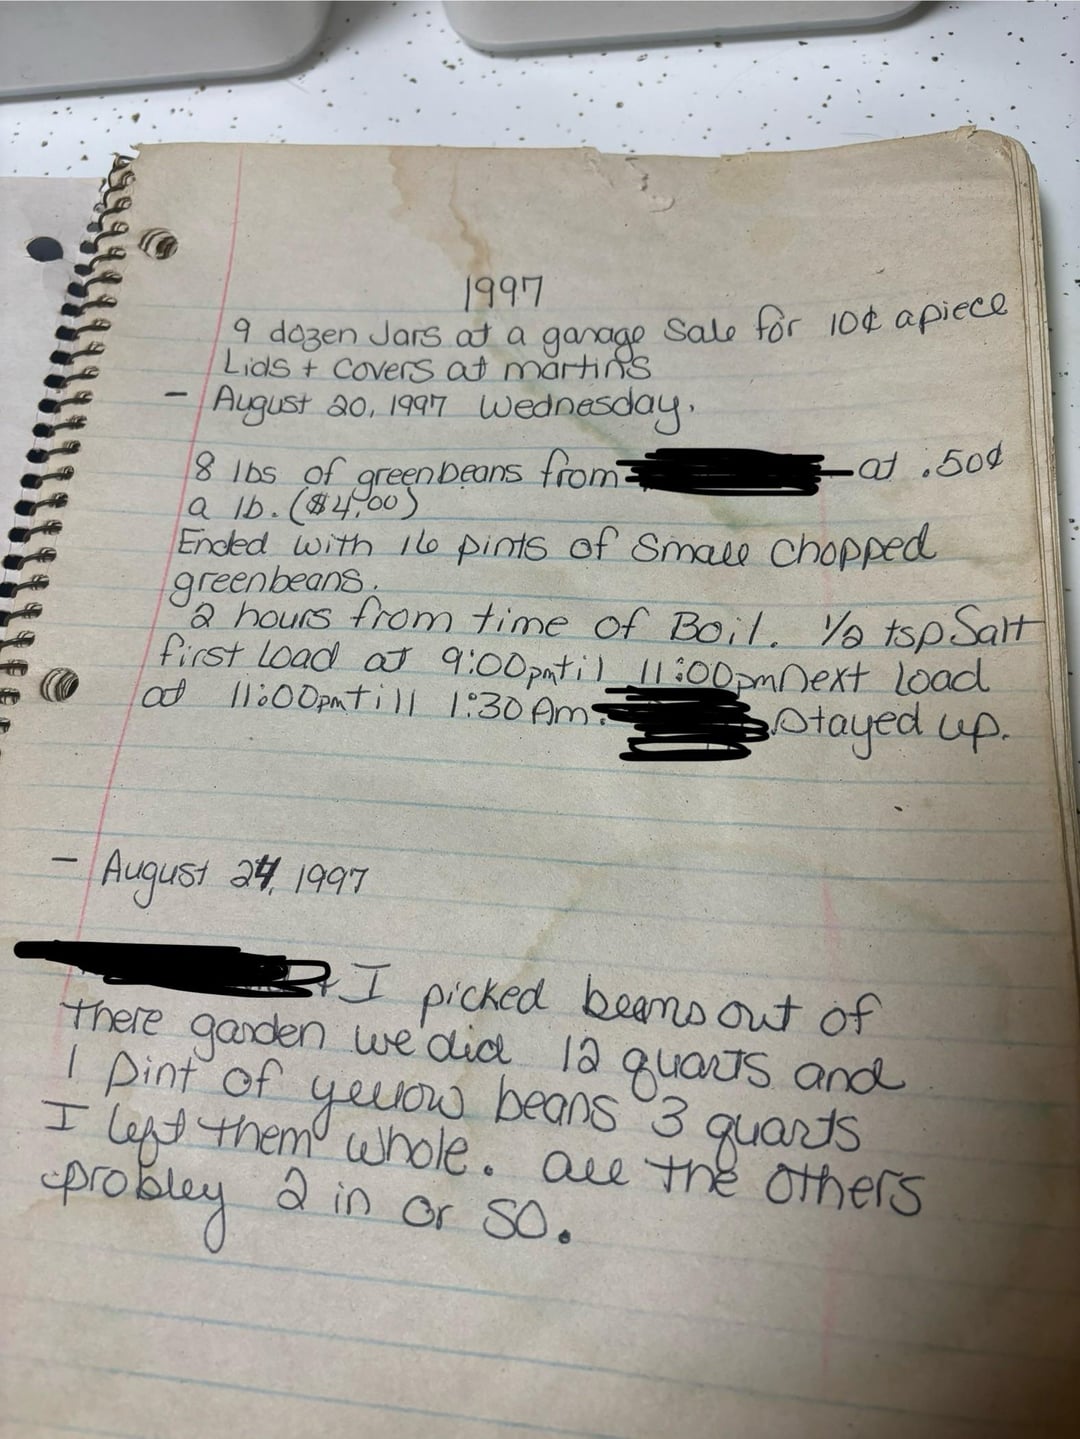 1997
9 dozen Jars at a garage Sale for 10¢ apiece
Lids + Covers at martins
- August 20, 1997 Wednesday.
8 lbs of greenbeans from at .50¢
a lb. ($4.00)
Ended with 16 pints of Small chopped
greenbeans.
2 hours from time of Boil. 1/2 tsp Salt
first Load at 9:00pm til 11:00pm next Load
at 11:00pm till 1:30 Am. Stayed up.
- August 24, 1997
+ I picked beans out of
there garden we did 12 quarts and
1 pint of yellow beans 3 quarts
I left them whole. all the others
probley 2 in or so.